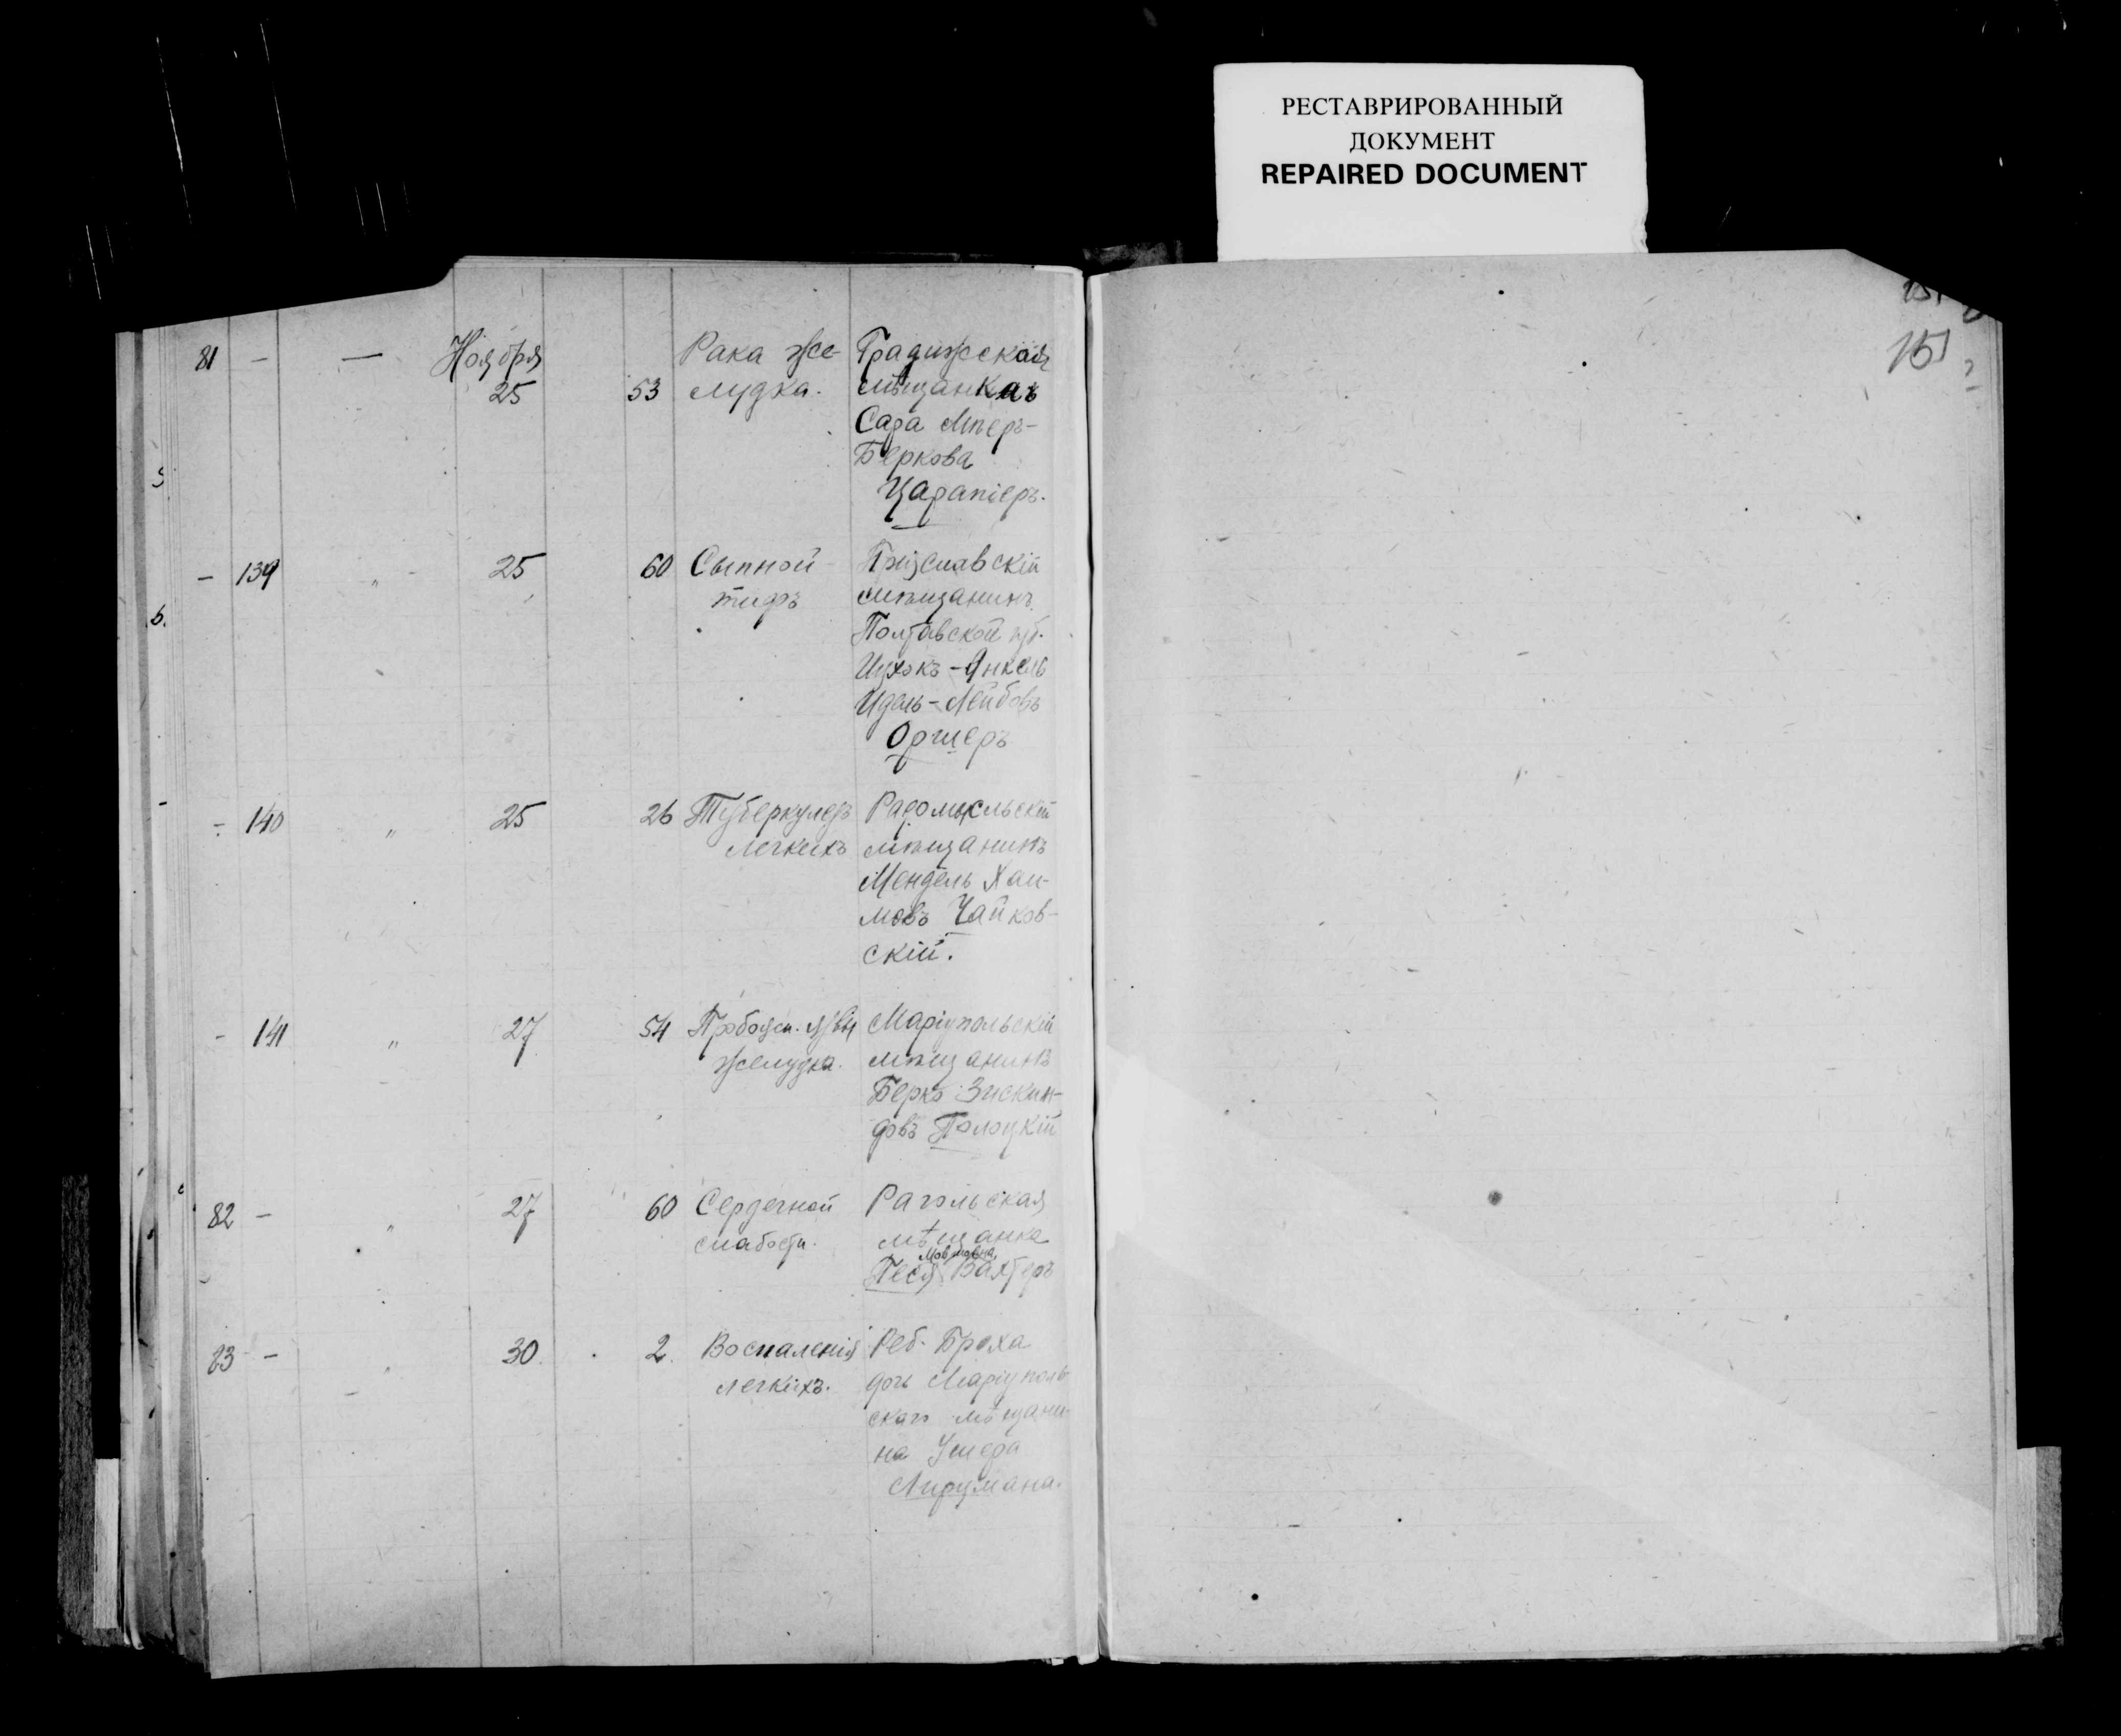 РЕСТАВРИРОВАННЫЙ
ДОКУМЕНТ
REPAIRED DOCUMENT
151
81 - — Ноября 25 53 Рака же-
лудка.
Градижская
мѣщанка
Сара Меер-
Беркова
- 139 " 25 60 Сыпной
тифъ
мѣщанинъ
Полтавской губ.
Ицхокъ-Янкель
Идель-Лейбовъ
Оршеръ
- 140 " 25 26 Туберкулезъ
легкихъ
Радомысльскій
мѣщанинъ
Мендель Хаи-
мовъ Чайков-
скій.
- 141 " 27 54 язвы
желудка.
Маріупольскій
мѣщанинъ
Берко Зискин-
довъ Полоцкій
82 - " 27 60 Сердечной
слабости.
мѣщанка
Песя Вахтеръ
83 - " 30 2 Воспаленія
легкихъ.
Реб. Броха
дочь Маріуполь-
скаго мѣщани-
на